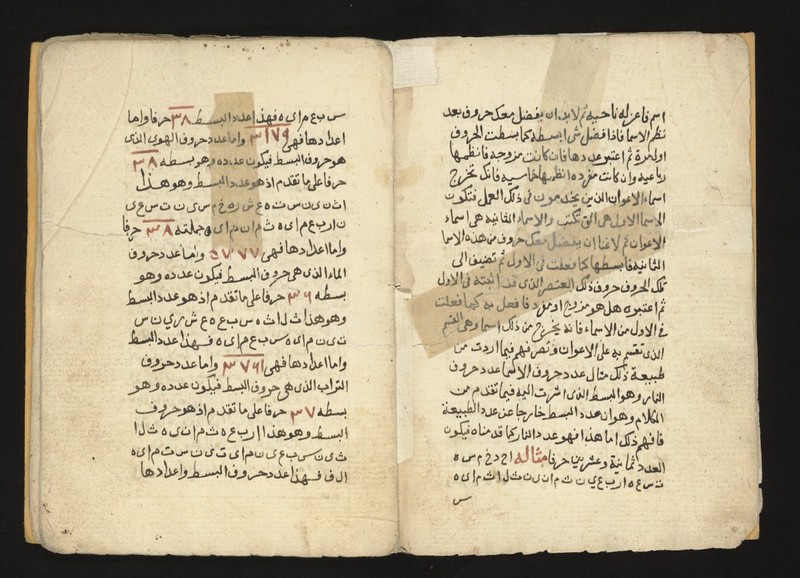 اسم فاعزله ناحية ثم لابد ان يفضل معك حروف بعد
نظر الاسما فاذا فضل شئ ابسطه كما بسطت الحروف
اول مرة ثم اعتبر عددها فان كانت مزوجه فانظمها
رباعيه وان كانت مفرده انظمها خماسيه فانك تخرج
اسماء الاعوان الذين يخدمون فى ذلك العمل فتكون
الاسما الاول هى التى تكتب والاسماء الثانيه هى اسماء
الاعوان ثم لابد ان يفضل معك حروف من هذه الاسما
الثانيه فابسطها كما فعلت فى الاول ثم تضيف الى
تلك الحروف حروف ذلك العنصر الذى قد اثبته فى الاول
ثم اعتبره هل هو مزوج او مفرد فافعل به كما فعلت
فى الاول من الاسماء فانه يخرج من ذلك اسما وهى القسم
الذى تقسم به على الاعوان وتصرفهم فيما اردت من
طبيعة ذلك مثال عدد حروف الاسما عدد حروف
النار وهو البسط الذى اشرت اليه فيما تقدم من
الكلام وهو ان عدد البسط خارجا عن عدد الطبيعة
فافهم ذلك اما هذا فهو عدد النار كما قدمناه فيكون
العدد ثمانية وعشرين حرفا مثاله ا ح د خ م س ه
ت س ع ه ا ر ب ع ى ن ث م ا ن ى ن ث ل ا ث م ا ى ه
س
س ب ع م ا ى ه فهذا عدد البسط ٣٨ حرفا واما
اعدادها فهى ٣١٧٩ واما عدد حروف الهوى الذى
هو حروف البسط فيكون عدده وهو بسطه ٣٨
حرفا على ما تقدم اذ هو عدد البسط وهو هذا
ا ث ن ى ن س ت ه ع ش ر ه خ م س ى ن ت س ع ى
ن ا ر ب ع م ا ى ه ث م ا ن م ا ى ه وجملته ٣٨ حرفا
واما اعدادها فهى واما عدد حروف
الماء الذى هى حروف البسط فيكون عدده وهو
بسطه ٣٦ حرفا على ما تقدم اذ هو عدد البسط
وهو هذا ث ل ا ث ه س ب ع ه ع ش ر ى ن س
ت ى ن م ا ى ه س ب ع م ا ى ه فهذا عدد البسط
واما اعدادها فهى ٣٧٦١ واما عدد حروف
التراب الذى هى حروف البسط فيكون عدده وهو
بسطه ٣٧ حرفا على ما تقدم اذ هو حروف
البسط وهو هذا ا ر ب ع ه ث م ا ن ى ه ث ل ا
ث ى ن س ب ع ى ن م ا ى ت ى ن س ت م ا ى ه
ا ل ف فهذا عدد حروف البسط واعدادها